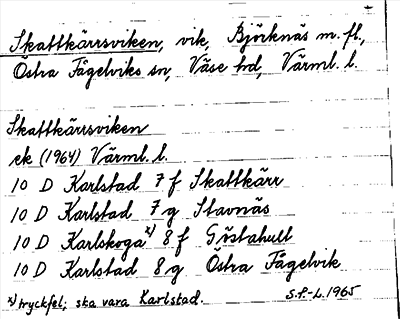 Skattkärrsviken, vik, Björknäs m. fl.,
Östra Fågelviks sn, Väse hd, Värml. l.
Skattkärrsviken
ek (1964) Värml. l.
10 D Karlstad 7 f Skattkärr
10 D Karlstad 7 g Stavnäs
10 D Karlskoga x) 8 f Göstahult
10 D Karlstad 8 g Östra Fågelvik
x) tryckfel; ska vara Karlstad.
S.F.-L. 1965